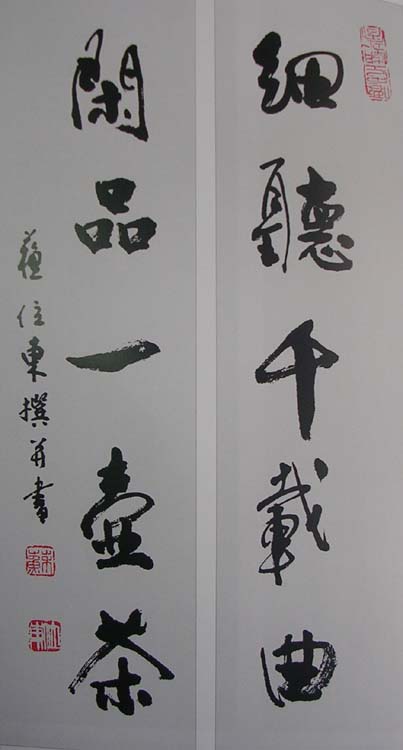 細聽千載曲
閑品一壺茶
蘇位東撰并書